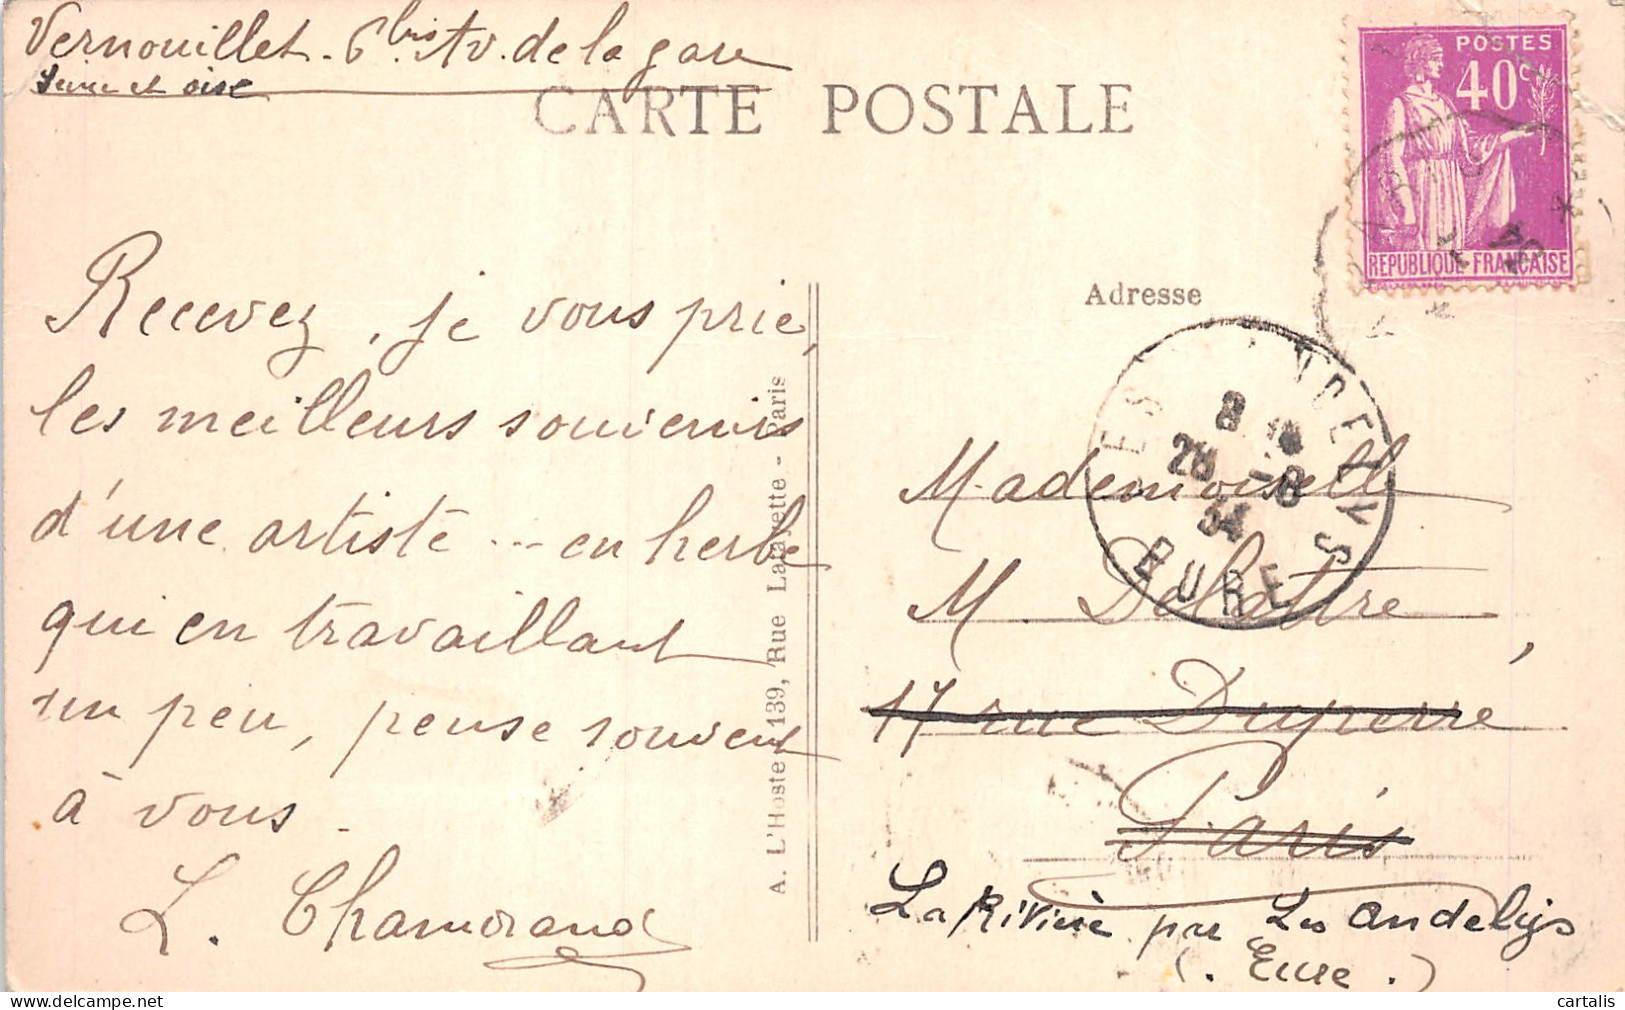 Vernouillet - 6 bis Av. de la gare
Seine et oise
CARTE POSTALE
POSTES
40c
REPUBLIQUE FRANÇAISE
Recevez, je vous prie,
les meilleurs souvenirs
d'une artiste ... en herbe
qui en travaillant
un peu, pense souvent
à vous.
L. Chamorand
A. L'Hoste 139, Rue Lafayette - Paris
Adresse
8
28 -8
34
EURE
Mademoiselle
M. Delattre,
17 rue Duperré
Paris
La Rivière par Les andelys
(. Eure .)
cartalis